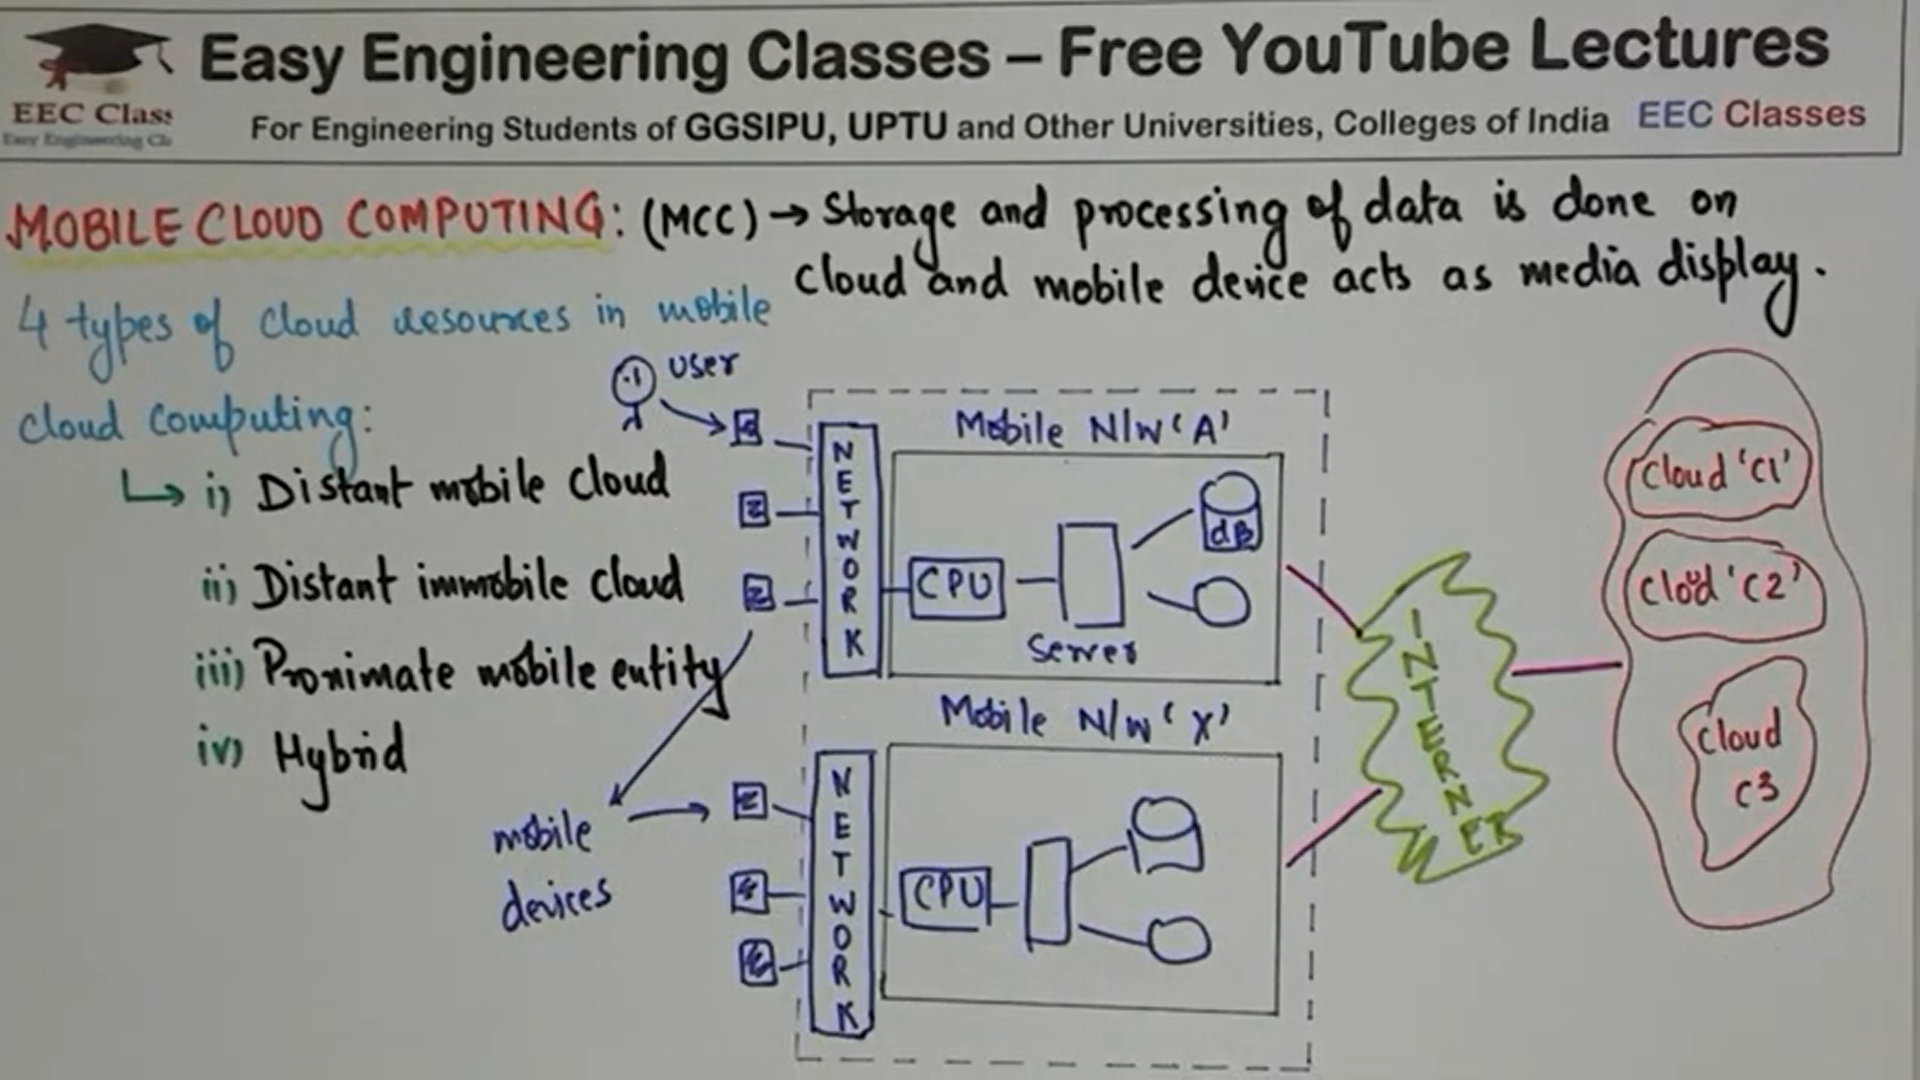 Easy Engineering Classes – Free YouTube Lectures
EEC Class
Easy Engineering Cla
For Engineering Students of GGSIPU, UPTU and Other Universities, Colleges of India EEC Classes
MOBILE CLOUD COMPUTING: (MCC) → Storage and processing of data is done on
cloud and mobile device acts as media display.
4 types of cloud resources in mobile
cloud computing:
↳ i) Distant mobile cloud
ii) Distant immobile cloud
iii) Proximate mobile entity
iv) Hybrid
user
mobile
devices
Mobile N/W 'A'
NETWORK
CPU
Server
dB
Mobile N/W 'X'
NETWORK
CPU
INTERNET
Cloud 'C1'
Cloud 'C2'
Cloud
C3